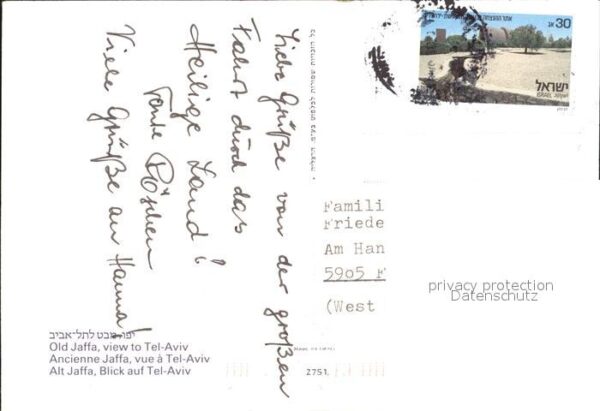 Liebe Grüße von der großen
Fahrt durch das
Heilige Land!
Tante Röschen
Viele Grüße an Hanna!
יפו, מבט לתל־אביב
Old Jaffa, view to Tel-Aviv
Ancienne Jaffa, vue à Tel-Aviv
Alt Jaffa, Blick auf Tel-Aviv
30 אג
ישראל
ISRAEL
Famili
Friede
Am Han
5905 F
(West
privacy protection
Datenschutz